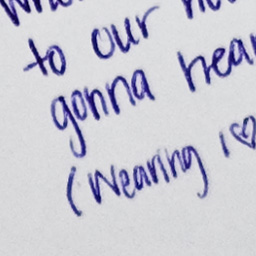 to our
gonna hear
(Wearing I ♡